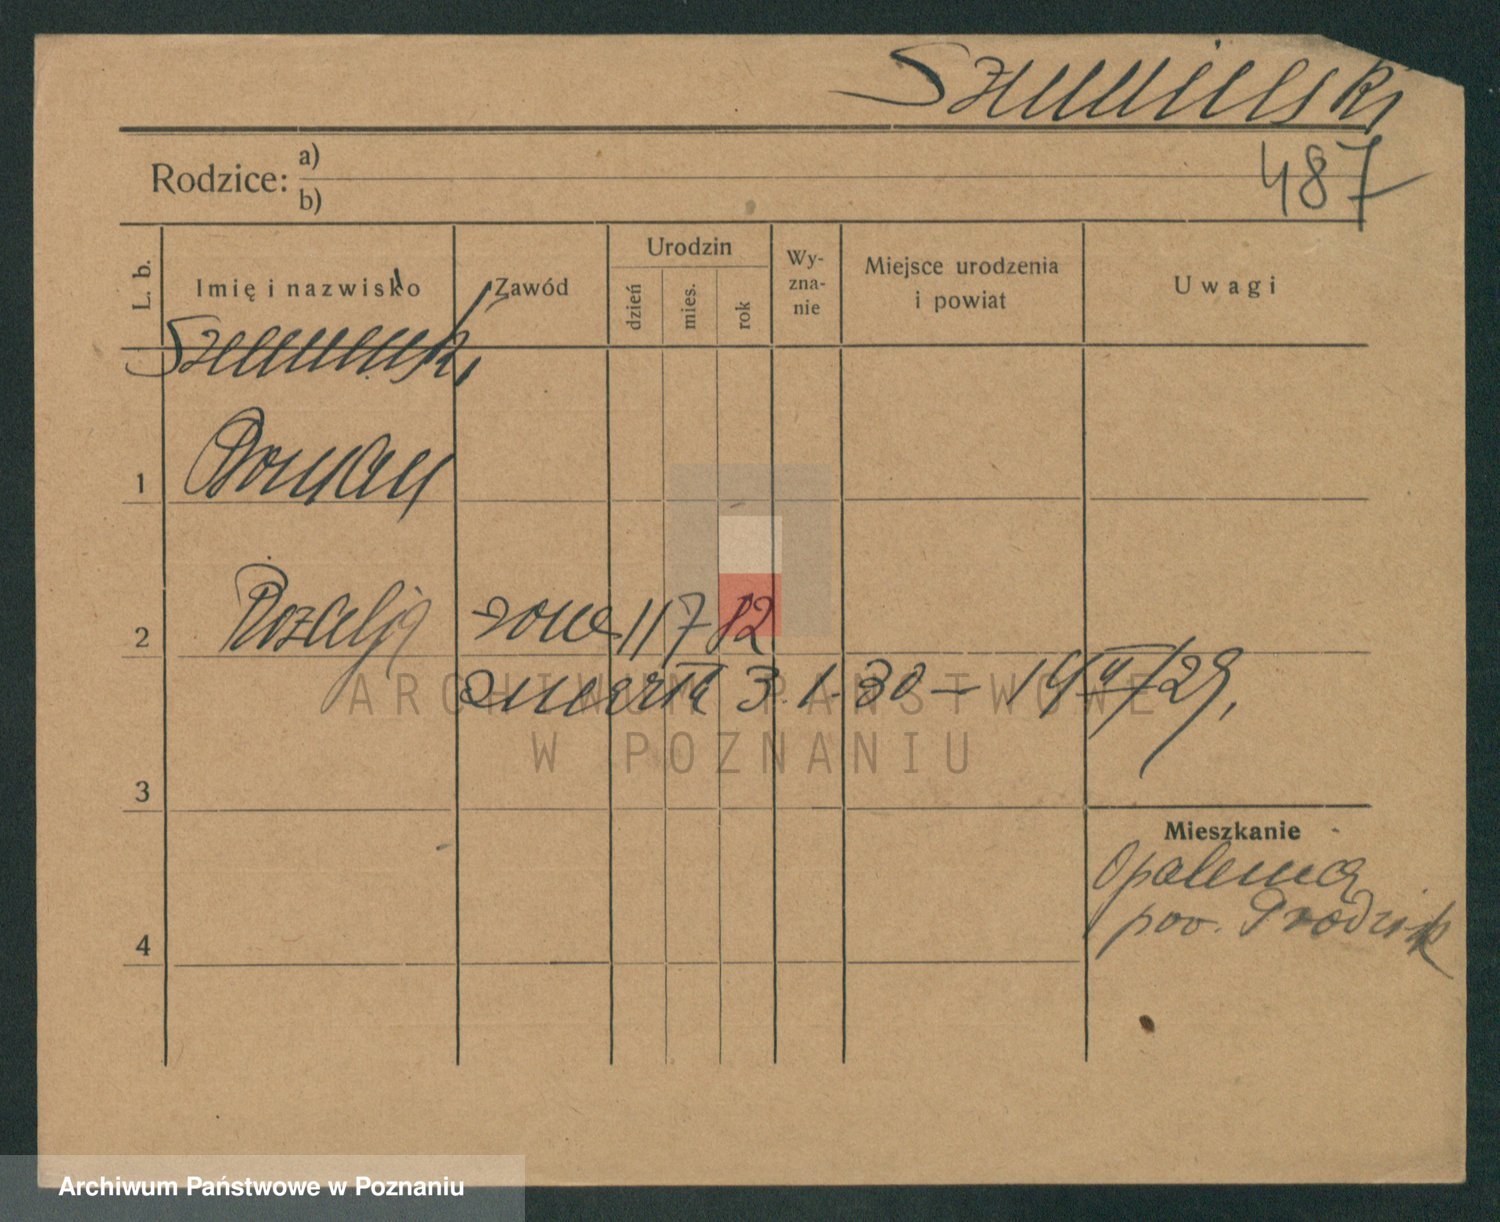 487
Rodzice: a)
b)
L. b.
Imię i nazwisko
Zawód
Urodzin
dzień
mies.
rok
Wy-
zna-
nie
Miejsce urodzenia
i powiat
Uwagi
1
Roman
2
Rozalja żona 11 7 82
zmarła 3.1.30 – 19 /29,
ARCHIWUM PAŃSTWOWE
W POZNANIU
3
Mieszkanie
Opalenica
pow. Grodzisk
4
Archiwum Państwowe w Poznaniu